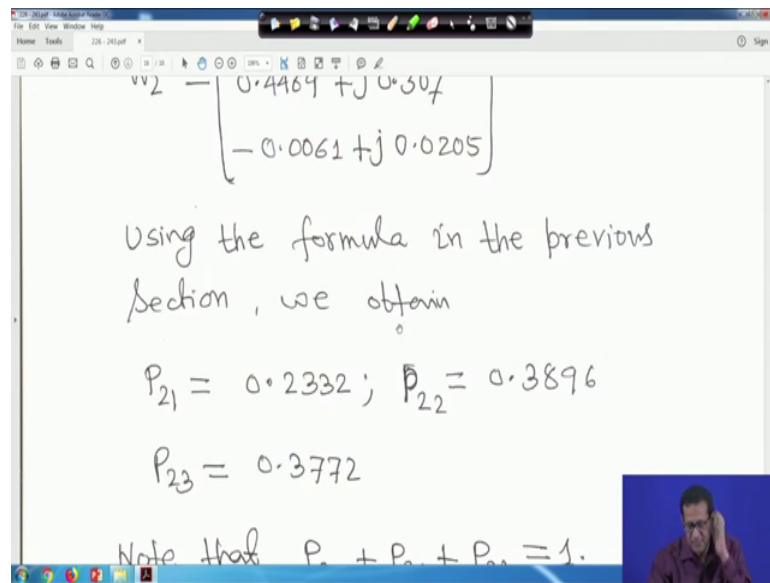 226 - 243.pdf - Adobe Acrobat Reader DC
File Edit View Window Help
Home Tools 226 - 243.pdf × Sign
W2 = 0.4469 + j 0.307
- 0.0061 + j 0.0205
Using the formula in the previous
Section, we obtain
P21 = 0.2332; P22 = 0.3896
P23 = 0.3772
Note that P + P + P = 1.